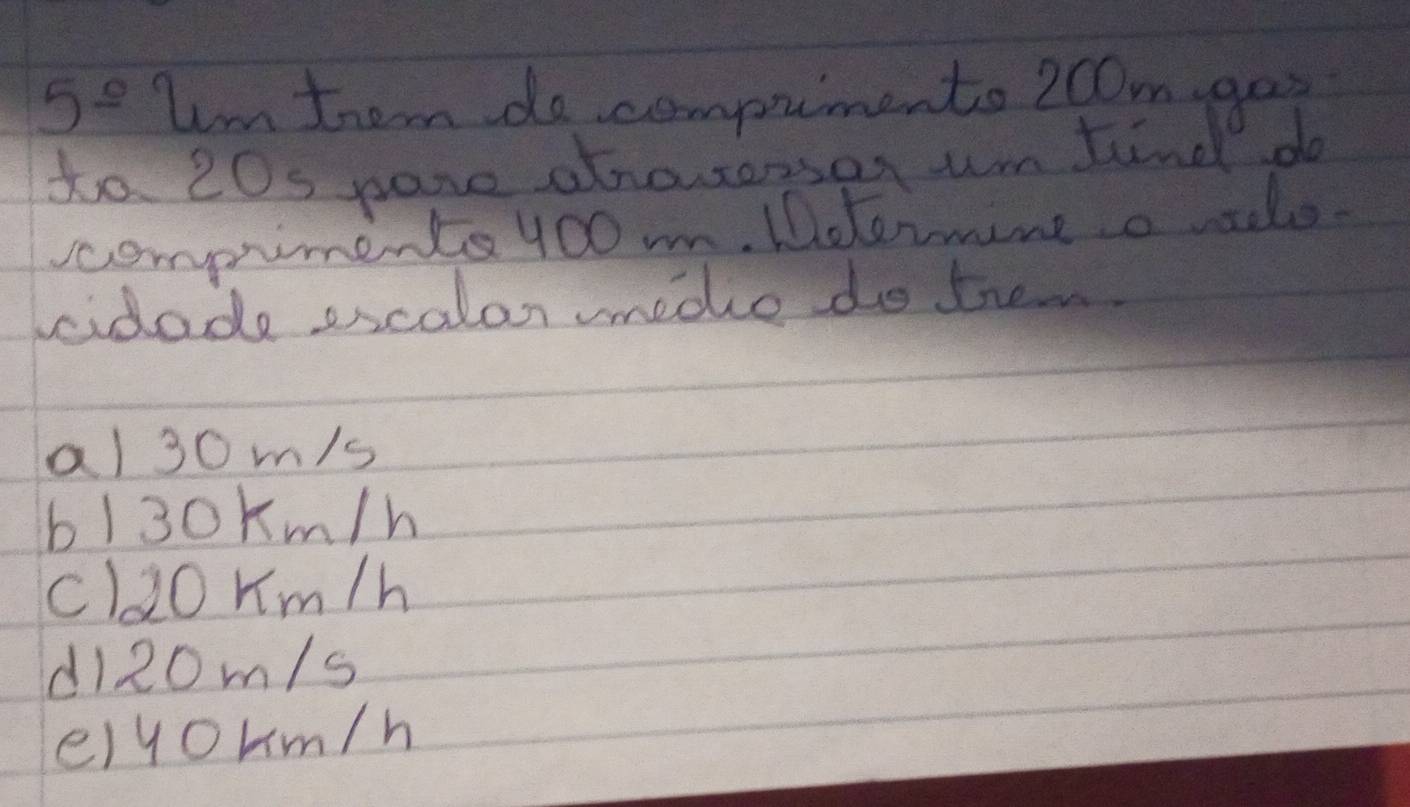 5º Um trem de comprimento 200m gas-
ta 20s para atravessar um túnel de
comprimento 400 m. Determine a velo-
cidade escalar média do trem.
a) 30 m/s
b) 30 Km/h
c) 20 Km/h
d) 20 m/s
e) 40 km/h